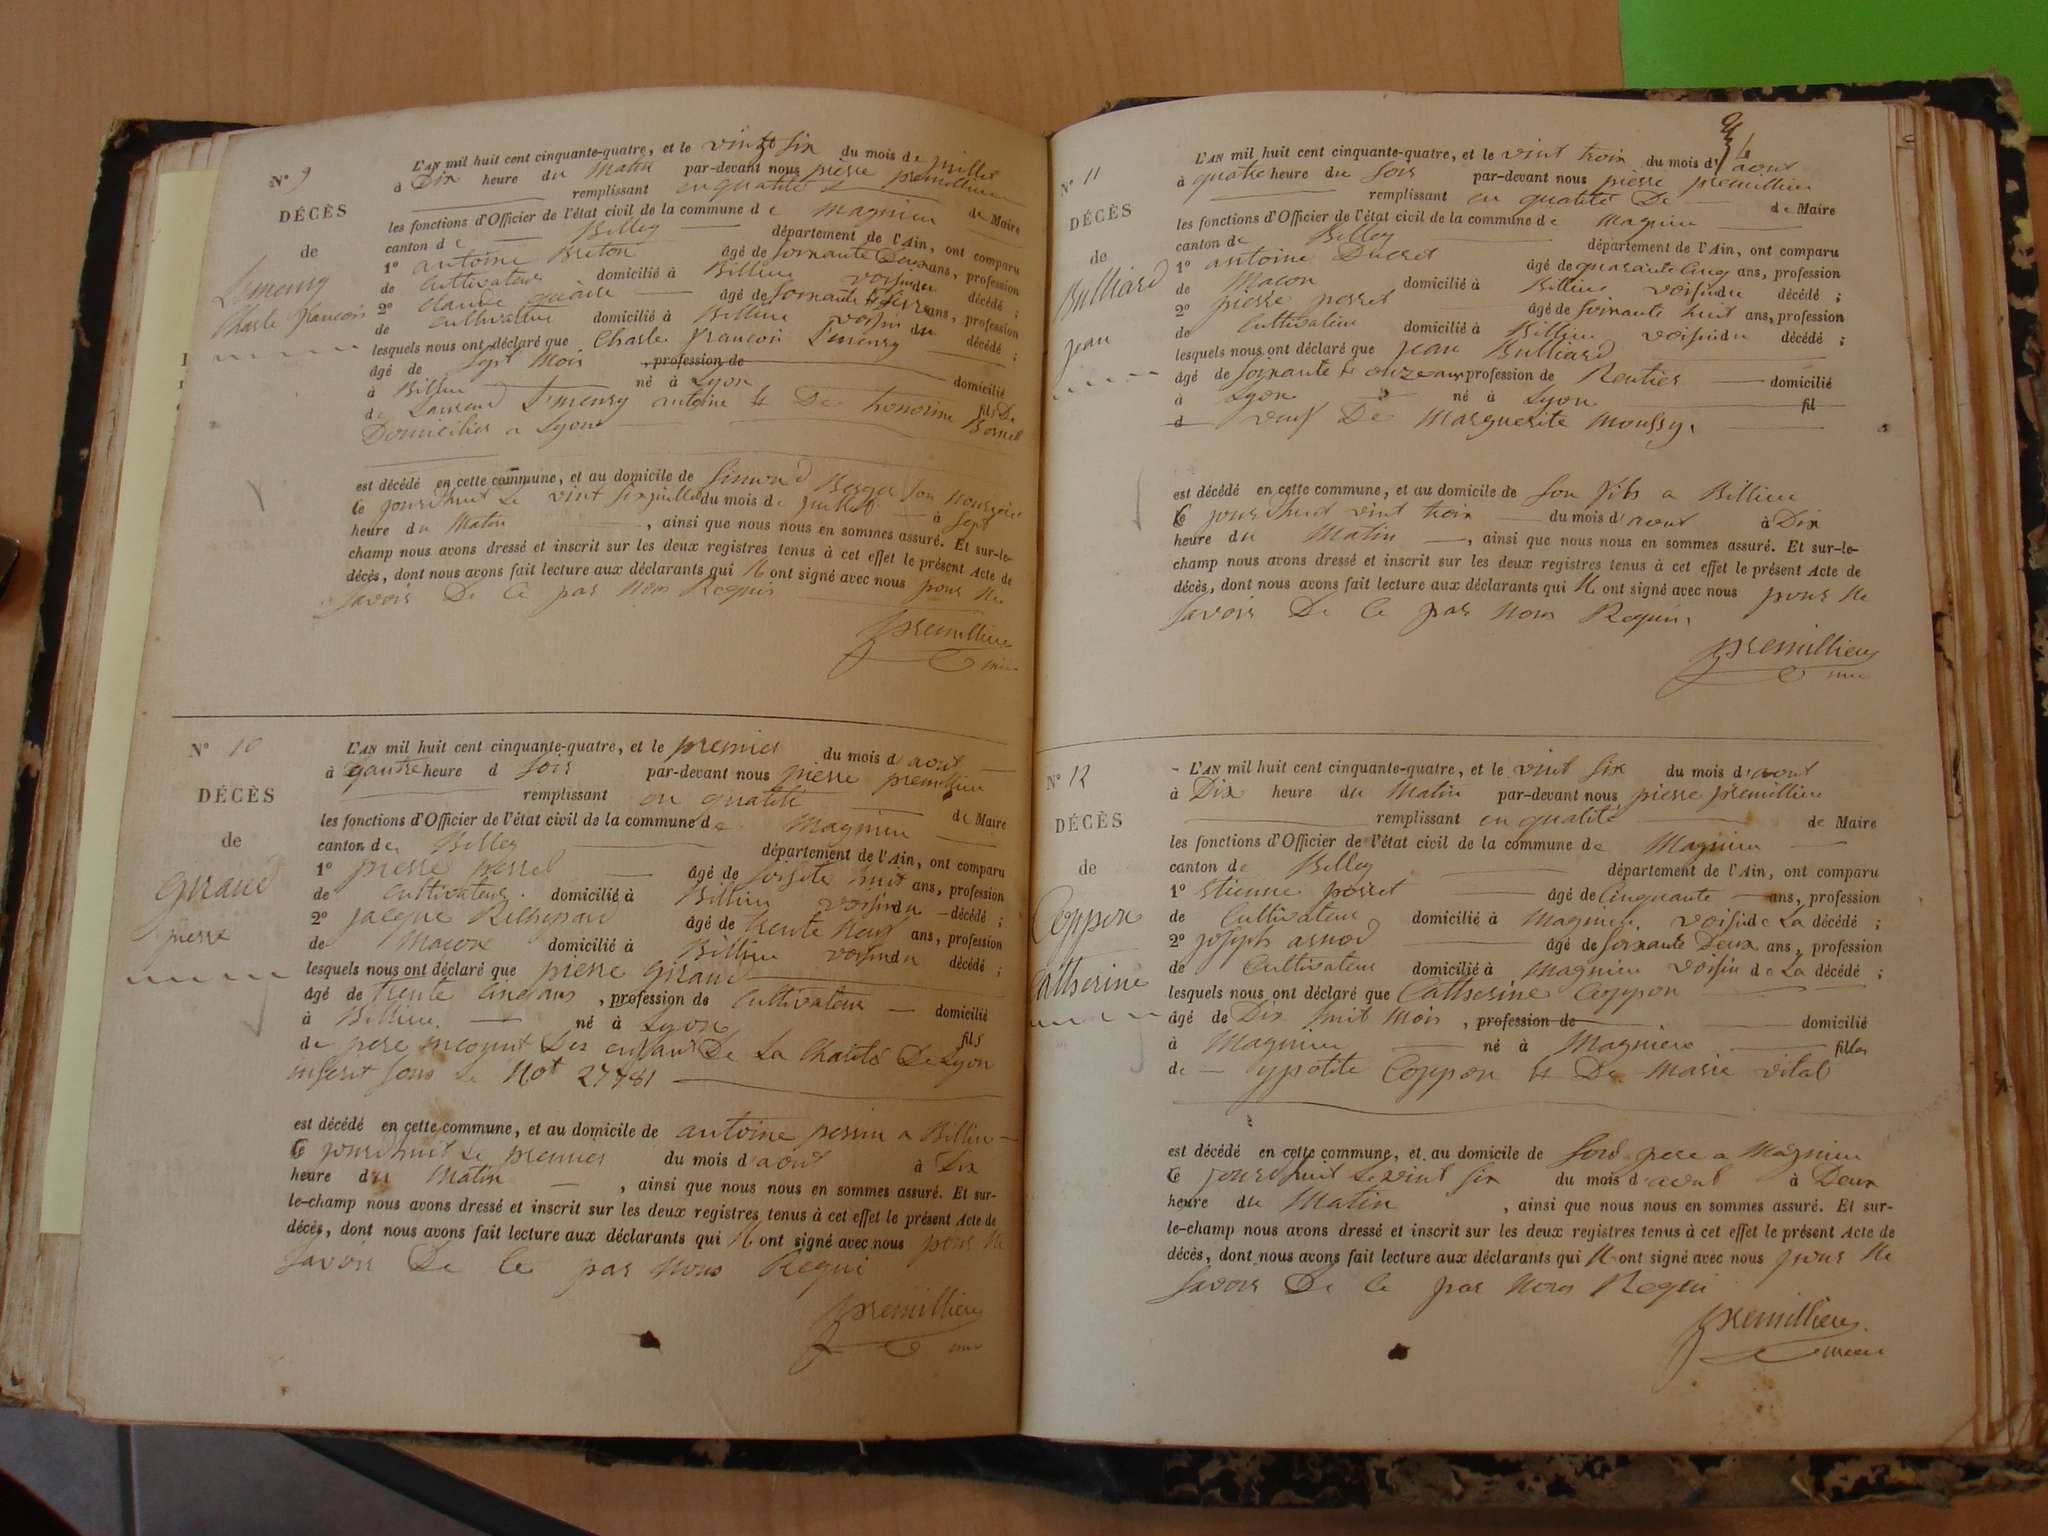 N° 9
DÉCÈS
de
Charle françois
L'AN mil huit cent cinquante-quatre, et le vingt six du mois de juillet
à Dix heure du Matin par-devant nous pierre premillieu
remplissant en qualité de Maire
les fonctions d'Officier de l'état civil de la commune de magnieu
canton de Belley département de l'Ain, ont comparu
1° antoine Breton âgé de soixante Deux ans, profession
de Cultivateur domicilié à Billieu voisin du décédé ;
2° Claude âgé de soixante ans, profession
de Cultivateur domicilié à Billieu voisin du décédé ;
lesquels nous ont déclaré que Charle françois
âgé de Sept Mois , profession de domicilié
à Billieu né à Lyon fils De
de Laurend antoine et De honorine
Domicilier a Lyon
est décédé en cette commune, et au domicile de Simond Berger son
le jourdhuit Le vint six juillet du mois de juillet à Sept
heure du Matin , ainsi que nous nous en sommes assuré. Et sur-le-
champ nous avons dressé et inscrit sur les deux registres tenus à cet effet le présent Acte de
décès, dont nous avons fait lecture aux déclarants qui N ont signé avec nous pour Ne
savoir De Ce par Nous Requis
premillieu
N° 10
DÉCÈS
de
Giraud
pierre
L'AN mil huit cent cinquante-quatre, et le premier du mois d'aout
à heure d Soir par-devant nous pierre premillieu
remplissant en qualité de Maire
les fonctions d'Officier de l'état civil de la commune de Magnieu
canton de Belley département de l'Ain, ont comparu
1° pierre perret âgé de huit ans, profession
de Cultivateur domicilié à Billieu voisin du décédé ;
2° jacque âgé de trente Neuf ans, profession
de Macon domicilié à Billieu voisin du décédé ;
lesquels nous ont déclaré que pierre Giraud
âgé de trente Cinq ans , profession de Cultivateur domicilié
à Billieu né à Lyon fils
de pere incognut Des enfans De La Charité De Lyon
inscrit sous Le Not 27781
est décédé en cette commune, et au domicile de antoine perrin a Billieu
le jourdhuit Le premier du mois d'aout à Dix
heure du Matin , ainsi que nous nous en sommes assuré. Et sur-
le-champ nous avons dressé et inscrit sur les deux registres tenus à cet effet le présent Acte de
décès, dont nous avons fait lecture aux déclarants qui N ont signé avec nous pour Ne
savoir De Ce par Nous Requi
premillieu
N° 11
DÉCÈS
de
Bulliard
jean
L'AN mil huit cent cinquante-quatre, et le vint trois du mois d'aout
à quatre heure du Soir par-devant nous pierre premillieu
remplissant en qualité De de Maire
les fonctions d'Officier de l'état civil de la commune de Magnieu
canton de Belley département de l'Ain, ont comparu
1° antoine Ducret âgé de quarante Cinq ans, profession
de Macon domicilié à Billieu voisin du décédé ;
2° pierre perret âgé de soixante huit ans, profession
de Cultivateur domicilié à Billieu voisin du décédé ;
lesquels nous ont déclaré que jean Bulliard
âgé de soixante et onze ans profession de Rentier domicilié
à Lyon né à Lyon fil
d veuf De Marguerite Moussy
est décédé en cette commune, et au domicile de son fils a Billieu
le jourdhuit vint trois du mois d'aout à Dix
heure du Matin , ainsi que nous nous en sommes assuré. Et sur-le-
champ nous avons dressé et inscrit sur les deux registres tenus à cet effet le présent Acte de
décès, dont nous avons fait lecture aux déclarants qui N ont signé avec nous pour Ne
savoir De Ce par Nous Requis
premillieu
N° 12
DÉCÈS
de
Coppon
Catherine
L'AN mil huit cent cinquante-quatre, et le vint six du mois d'aout
à Dix heure du Matin par-devant nous pierre premillieu
remplissant en qualité de Maire
les fonctions d'Officier de l'état civil de la commune de Magnieu
canton de Belley département de l'Ain, ont comparu
1° Etienne perret âgé de Cinquante ans, profession
de Cultivateur domicilié à Magnieu voisin de La décédé ;
2° joseph arnod âgé de soixante Deux ans, profession
de Cultivateur domicilié à Magnieu voisin de La décédé ;
lesquels nous ont déclaré que Catherine Coppon
âgé de Dix huit Mois , profession de domicilié
à Magnieu né à Magnieu filles
de ypolite Coppon et De Marie vital
est décédé en cette commune, et au domicile de son pere a Magnieu
le jourdhuit Le vint six du mois d'aout à Deux
heure du Matin , ainsi que nous nous en sommes assuré. Et sur-
le-champ nous avons dressé et inscrit sur les deux registres tenus à cet effet le présent Acte de
décès, dont nous avons fait lecture aux déclarants qui N ont signé avec nous pour Ne
savoir De Ce par Nous Requi
premillieu